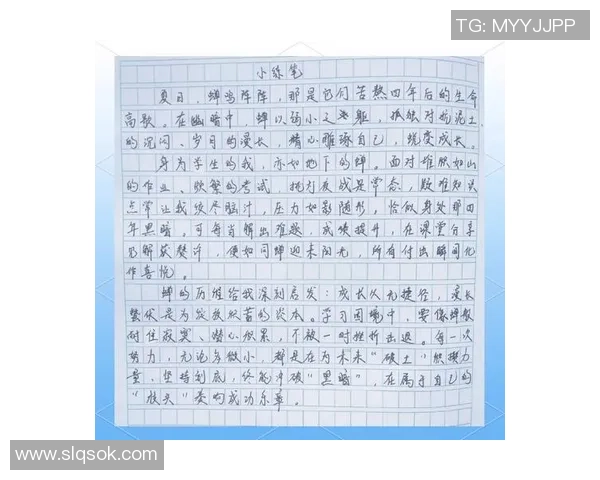 TG: MYYJJPP
小练笔
夏日，蝉鸣阵阵，那是它们苦熬四年后的生命
高歌。在幽暗中，蝉以弱小之躯，孤独对抗泥土
的沉闷、岁月的漫长，精心雕琢自己，蜕变成长。
身为学生的我，亦如地下的蝉。面对堆积如山
的作业、频繁的考试，挑灯夜战是常态，数难知识
点常让我绞尽脑汁，压力如影随形，恰似身处那四
年黑暗。可每当解出难题，成绩提升，在课堂分享
见解获赞许，便如同蝉迎来阳光，所有付出瞬间化
作喜悦。
蝉的历程给我深刻启发：成长从无捷径，漫长
蛰伏是为绽放积蓄的资本。学习困境中，要像蝉般
耐住寂寞、潜心积累，不被一时挫折击退。每一次
努力，无论多微小，都是在为未来“破土”积攒力
量，坚持到底，终能冲破“黑暗”，在属于自己的
“枝头”奏响成功乐章。
www.slqsok.com